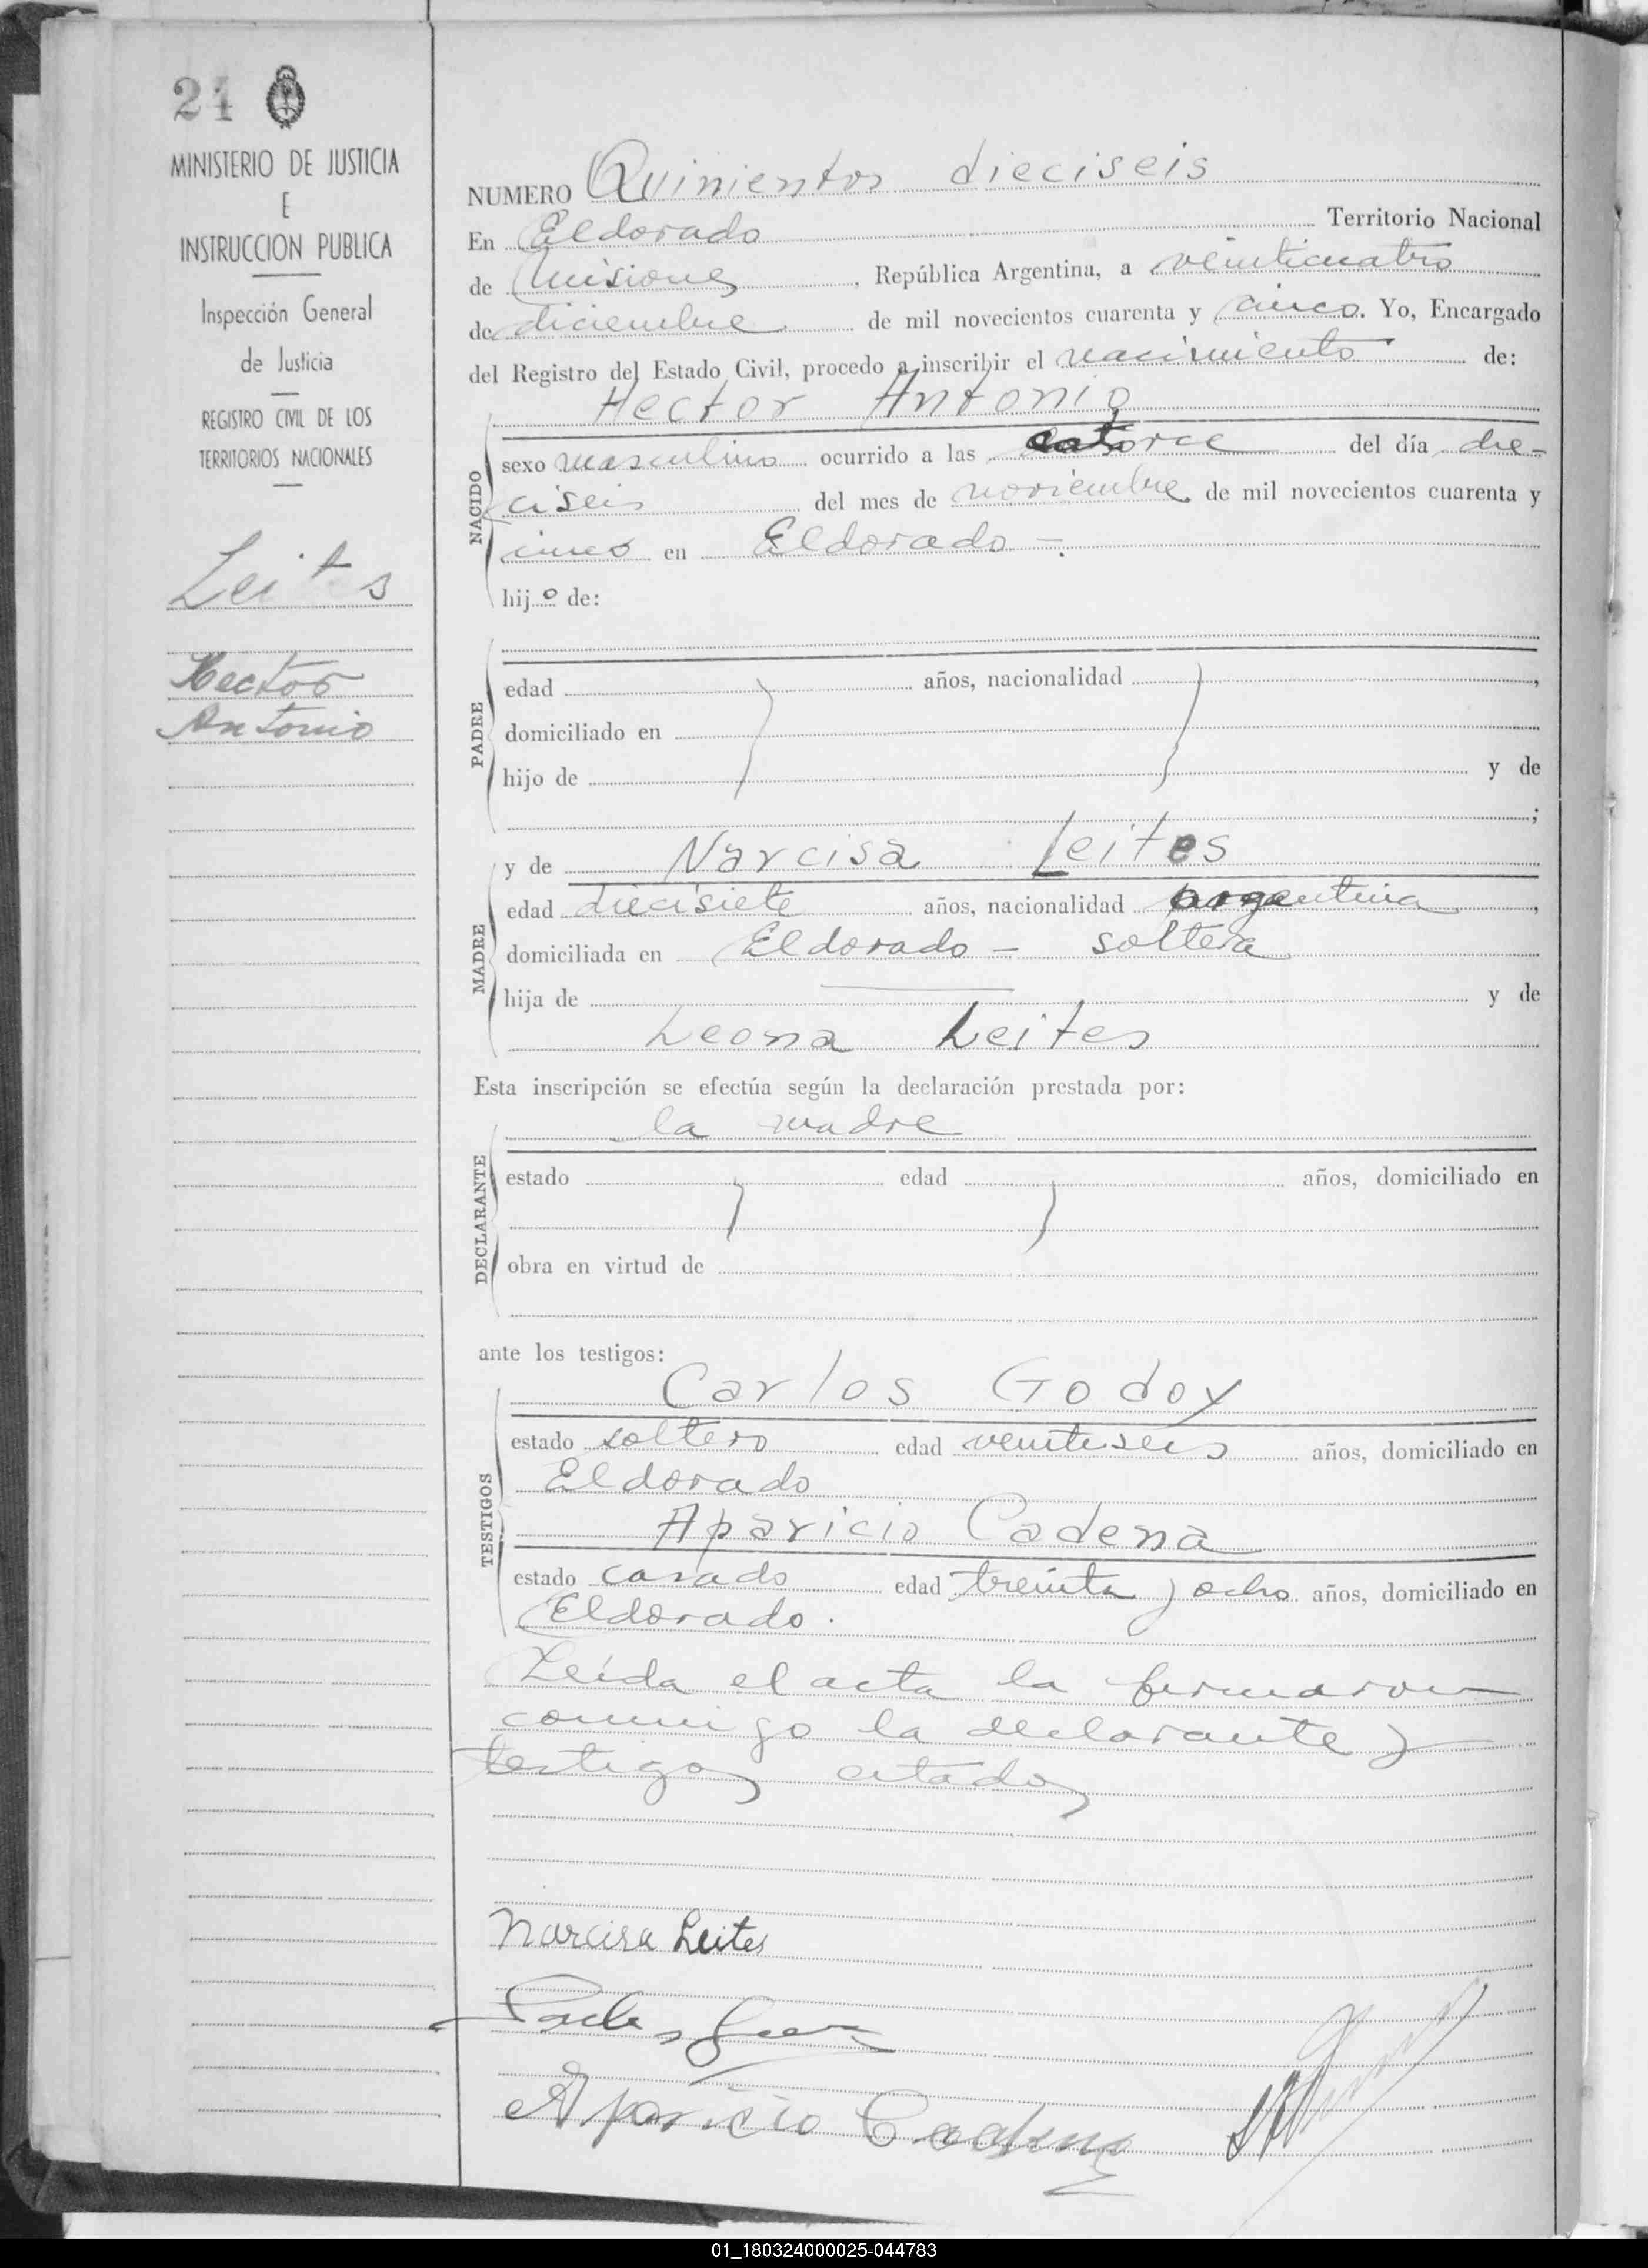 24
MINISTERIO DE JUSTICIA
E
INSTRUCCION PUBLICA
Inspección General
de Justicia
REGISTRO CIVIL DE LOS
TERRITORIOS NACIONALES
Leites
Hector
Antonio
NUMERO Quinientos dieciseis
En Eldorado Territorio Nacional
de Misiones, República Argentina, a veinticuatro
de diciembre de mil novecientos cuarenta y cinco. Yo, Encargado
del Registro del Estado Civil, procedo a inscribir el nacimiento de:
Hector Antonio
NACIDO
sexo masculino ocurrido a las catorce del día die-
ciseis del mes de noviembre de mil novecientos cuarenta y
cinco en Eldorado -.
hijo de:
PADRE
edad años, nacionalidad ,
domiciliado en
hijo de y de
;
MADRE
y de Narcisa Leites
edad diecisiete años, nacionalidad argentina,
domiciliada en Eldorado - soltera
hija de y de
Leona Leites
Esta inscripción se efectúa según la declaración prestada por:
la madre
DECLARANTE
estado edad años, domiciliado en
obra en virtud de
ante los testigos:
Carlos Godoy
TESTIGOS
estado soltero edad veinteseis años, domiciliado en
Eldorado
Aparicio Cadena
estado casado edad treinta y ocho años, domiciliado en
Eldorado.
Leída el acta la firmaron
conmigo la declarante y
testigos citados
Narcisa Leites
Aparicio Cadena
01_180324000025-044783